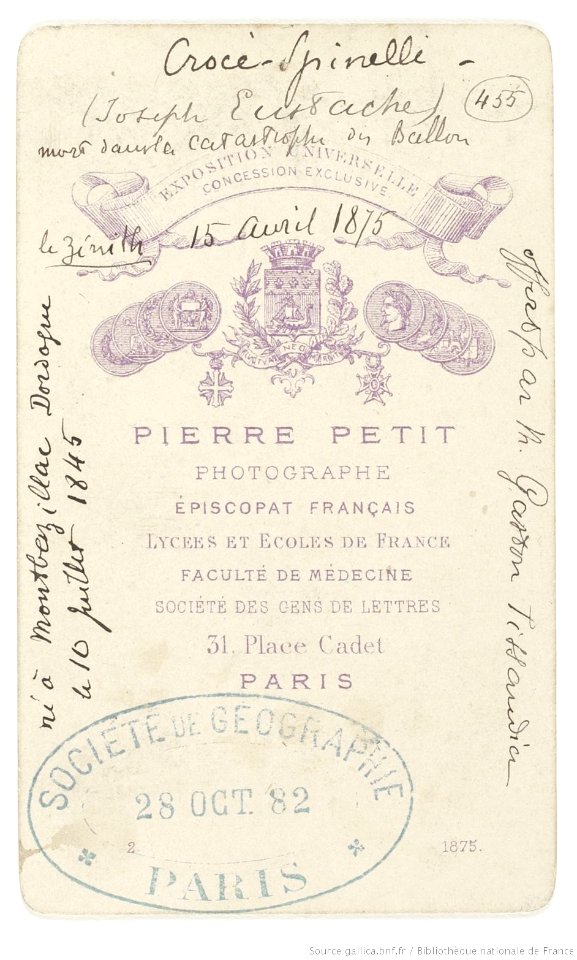 Crocé-Spinelli -
(Joseph Eustache)
455
mort dans la catastrophe du Ballon
EXPOSITION UNIVERSELLE
CONCESSION EXCLUSIVE
le zénith 15 avril 1875
né à Montbazillac Dordogne
le 10 juillet 1845
offert par M. Gaston Tissandier
PIERRE PETIT
PHOTOGRAPHE
ÉPISCOPAT FRANÇAIS
LYCEES ET ECOLES DE FRANCE
FACULTÉ DE MÉDECINE
SOCIÉTÉ DES GENS DE LETTRES
31, Place Cadet
PARIS
SOCIÉTÉ DE GÉOGRAPHIE
28 OCT. 82
PARIS
2
1875.
Source gallica.bnf.fr / Bibliothèque nationale de France